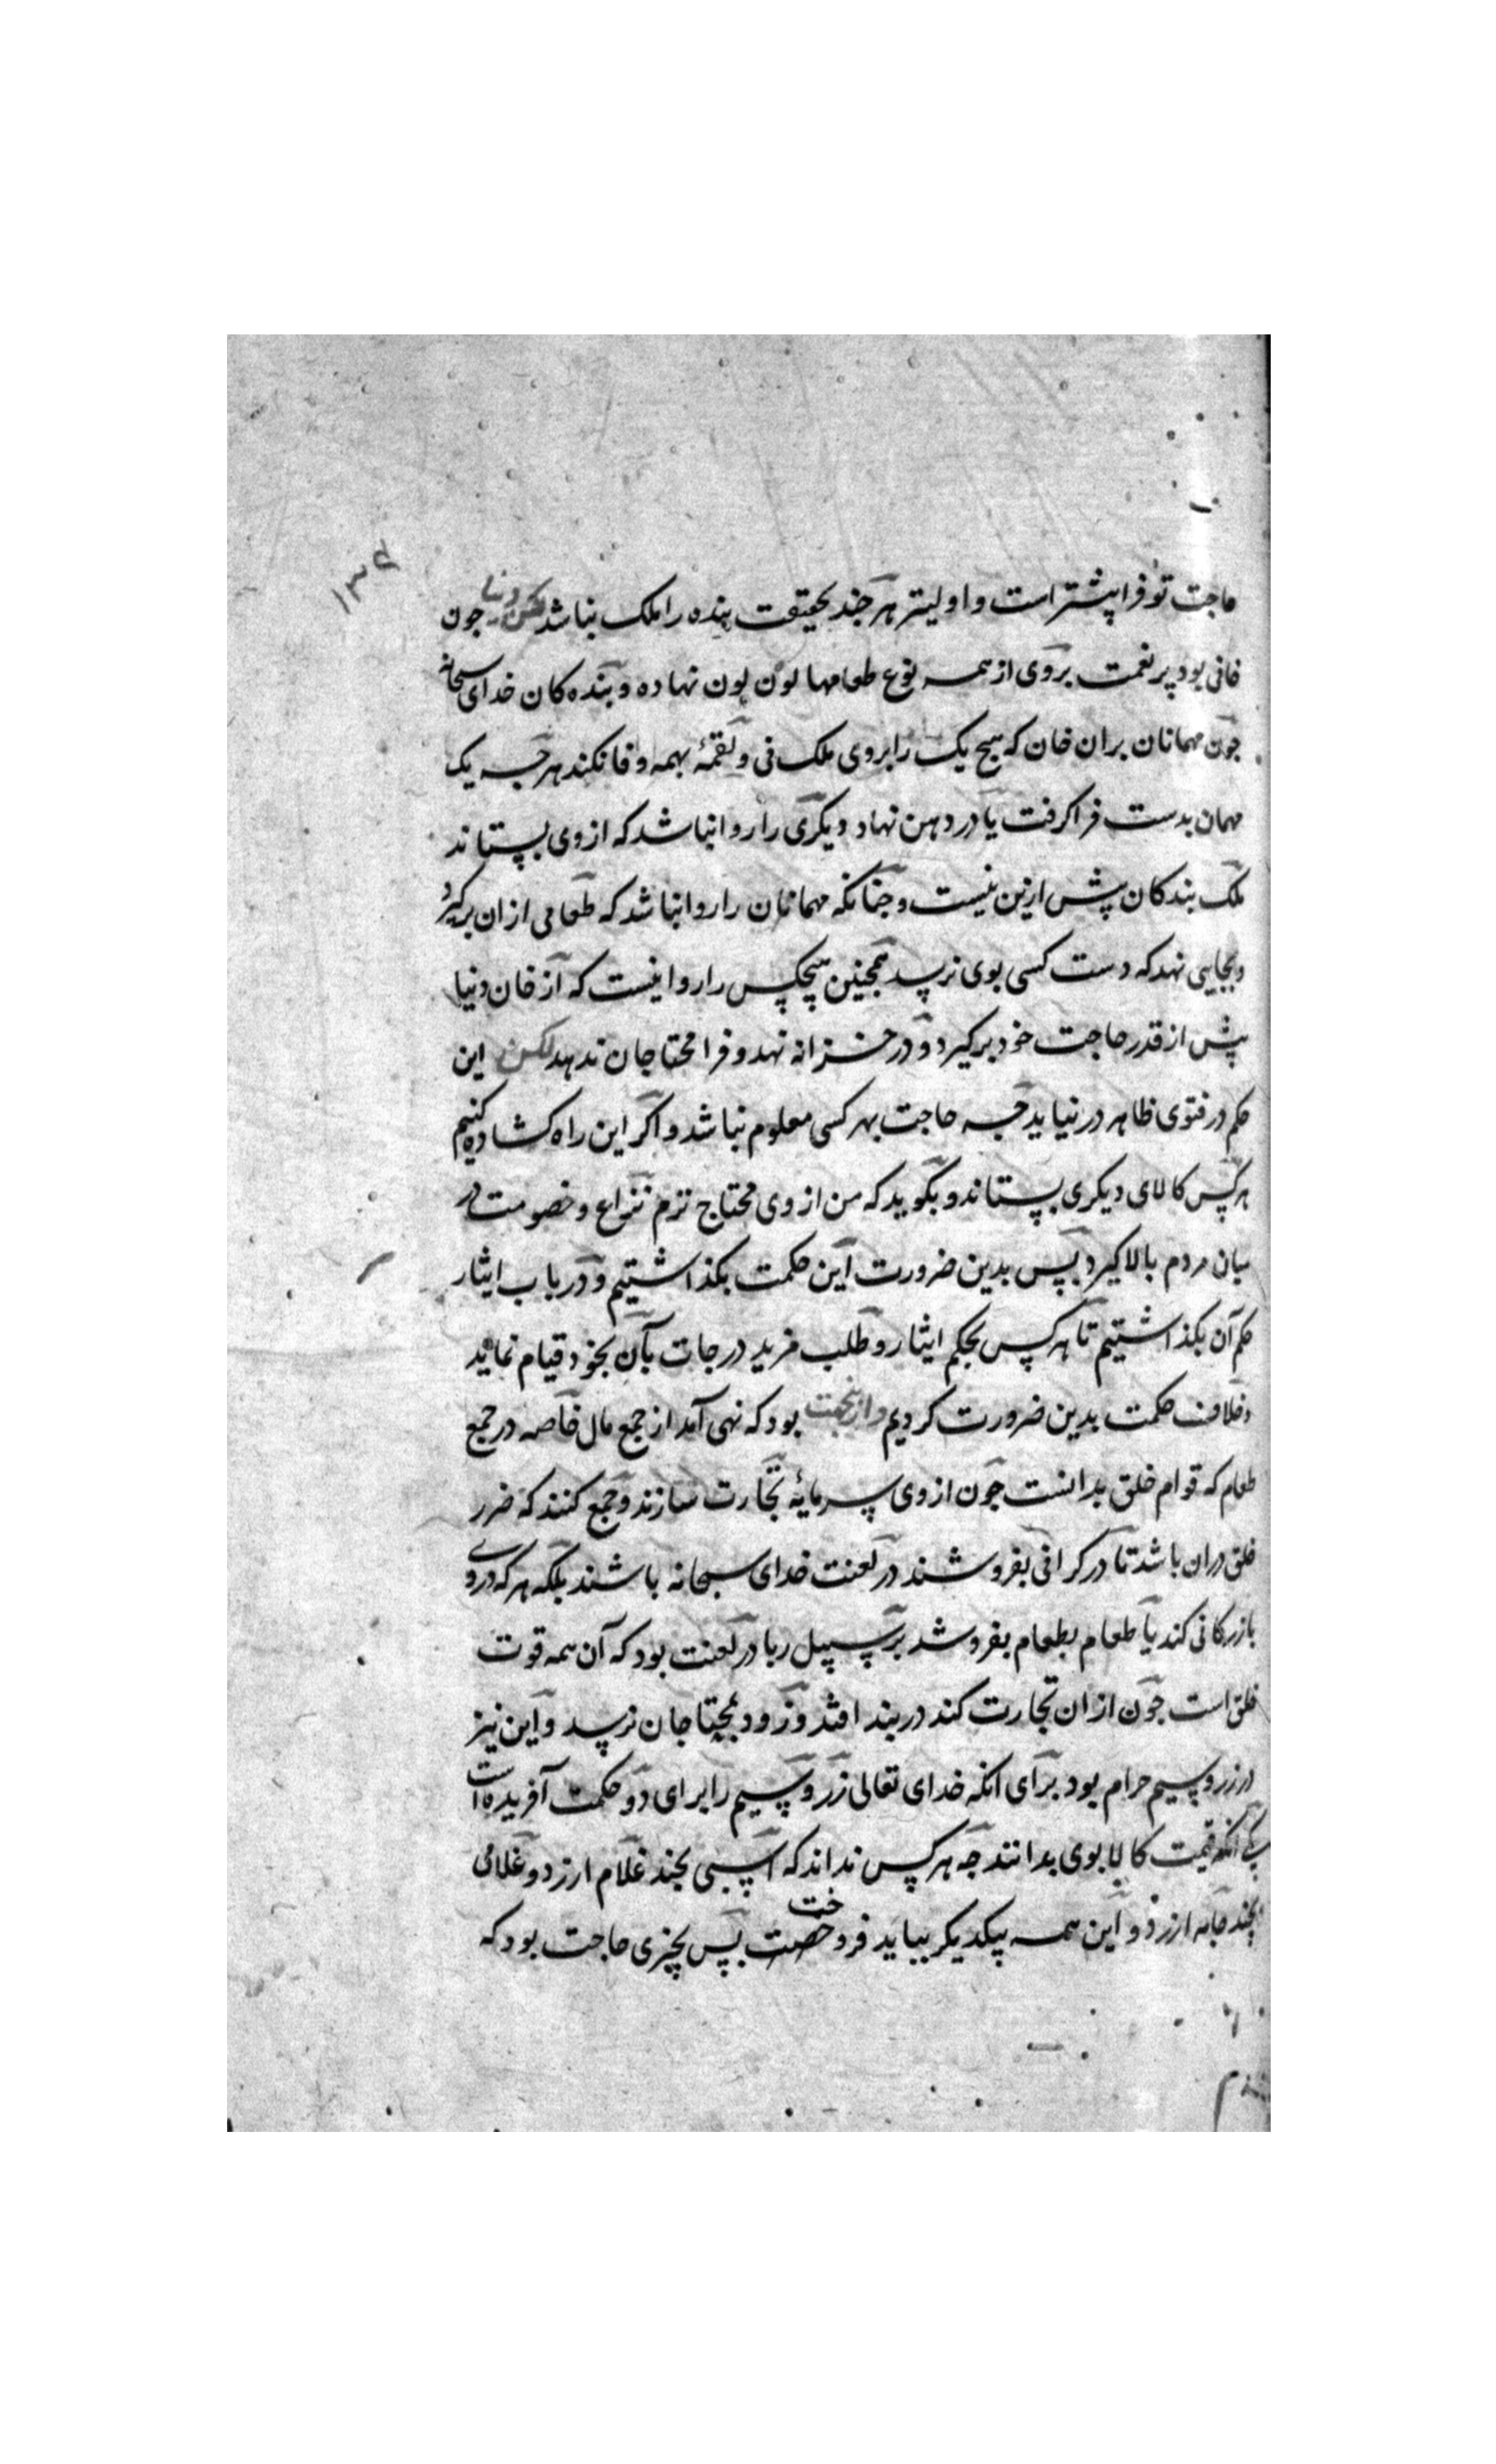 ۱۳۶
حاجت تو فرا پیشتر است و اولیتر هر جند بحقیقت بنده را ملک نباشد لکن دنیا جون
خانی بود پر نعمت بروی از همه نوع طعامها لون لون نهاده و بنده کان خدای سبحانه
جون مهمانان بران خان که هیج یک را بروی ملک نی و لقمۀ بهمه وفا نکند هرجه یک
مهمان بدست فرا کرفت یا در دهن نهاد دیکری را روا نباشد که از وی بستاند
ملک بندکان پیش ازین نیست و جنانکه مهمانان را روا نباشد که طعامی از ان برکیرد
و بجایی نهد که دست کسی بوی نرسد همجنین هیجکس را روا نیست که از خان دنیا
پیش از قدر حاجت خود برکیرد و در خزانه نهد و فرا محتاجان ندهد لکن این
حکم در فتوی ظاهر در نیاید جه حاجت بهر کسی معلوم نباشد و اکر این راه کشاده کنیم
هر کس کالای دیکری بستاند و بکوید که من از وی محتاج ترم نزاع و خصومت در
میان مردم بالا کیرد بس بدین ضرورت این حکمت بکذاشتیم و در باب ایثار
حکم آن بکذاشتیم تا هر کس بحکم ایثار و طلب مزید درجات بآن بخود قیام نماید
و خلاف حکمت بدین ضرورت کردیم و ازینجهت بود که نهی آمد از جمع مال خاصه در جمع
طعام که قوام خلق بدانست جون از وی سرمایۀ تجارت سازند و جمع کنند که ضرر
خلق دران باشد تا در کرانی بفروشند در لعنت خدای سبحانه باشند بلکه هر که در وی
بازرکانی کند یا طعام بطعام بفروشد بر سبیل ربا در لعنت بود که آن همه قوت
خلق است جون از ان تجارت کند در بند افتد و زود بمحتاجان نرسد و این نیز
در زر و سیم حرام بود برای آنکه خدای تعالی زر و سیم را برای دو حکمت آفریده است
یکی آنکه قیمت کالا بوی بدانند جه هر کس نداند که اسبی بجند غلام ارزد و غلامی
بجند جامه ارزد و این همه بیکدیکر بباید فروخت بس بجیزی حاجت بود که